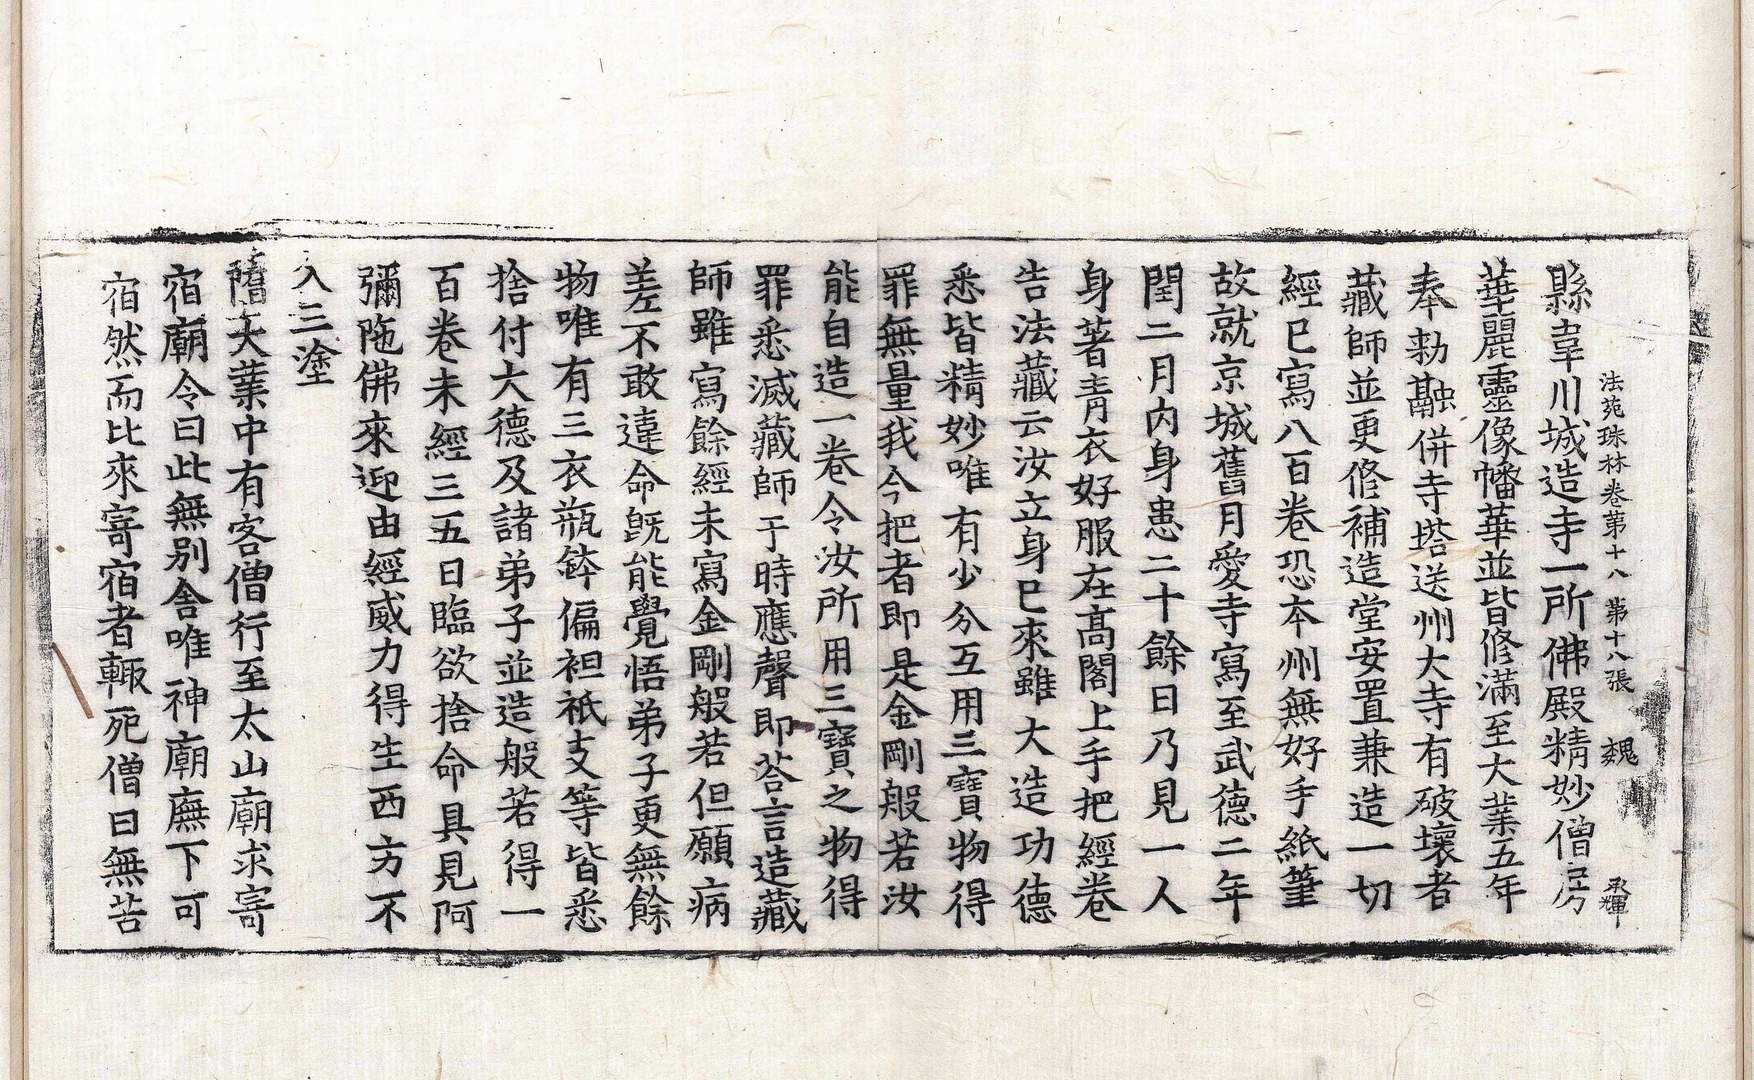 法苑珠林卷第十八 第十八張 魏 承輝
縣韋川城造寺一所佛殿精妙僧房
華麗靈像幡華並皆修滿至大業五年
奉勑融併寺塔送州大寺有破壞者
藏師並更修補造堂安置兼造一切
經已寫八百卷恐本州無好手紙筆
故就京城舊月愛寺寫至武德二年
閏二月內身患二十餘日乃見一人
身著青衣好服在高閣上手把經卷
告法藏云汝立身已來雖大造功德
悉皆精妙唯有少分互用三寶物得
罪無量我今把者即是金剛般若汝
能自造一卷令汝所用三寶之物得
罪悉滅藏師于時應聲即荅言造藏
師雖寫餘經未寫金剛般若但願病
差不敢違命旣能覺悟弟子更無餘
物唯有三衣瓶鉢偏袒祇支等皆悉
捨付大德及諸弟子並造般若得一
百卷未經三五日臨欲捨命具見阿
彌陁佛來迎由經威力得生西方不
入三塗
隋大業中有客僧行至太山廟求寄
宿廟令曰此無別舍唯神廟廡下可
宿然而比來寄宿者輙死僧曰無苦